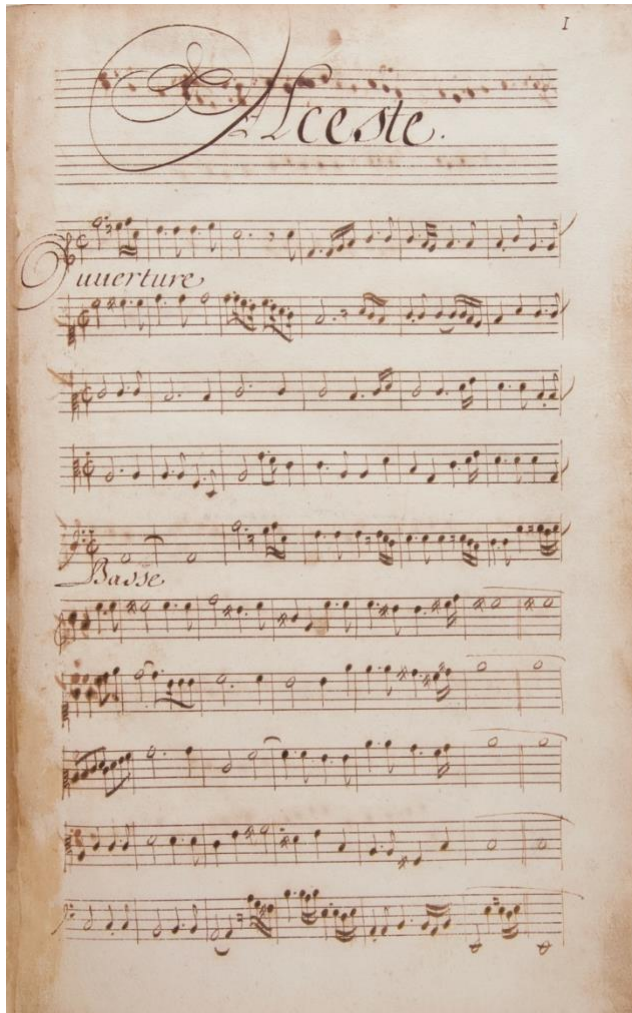 I
Alceste.
Ouuerture
Basse